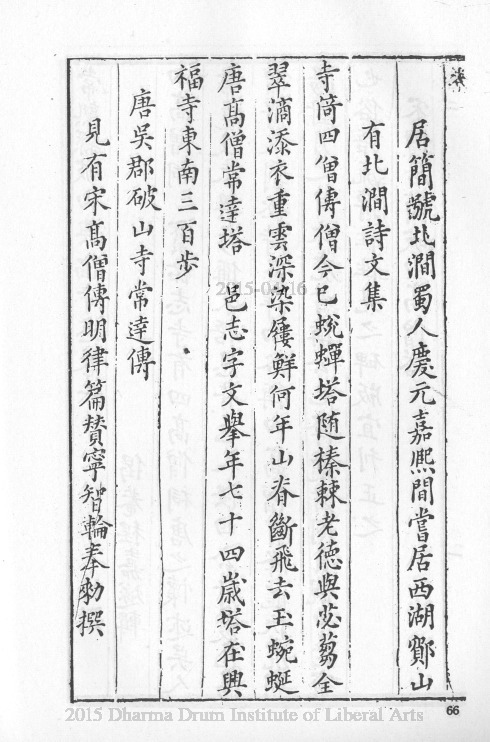 居簡號北澗蜀人慶元嘉熙間嘗居西湖鄮山
有北澗詩文集
寺荷四僧傳僧今已蛻蟬塔随榛棘老德與苾蒭全
翠滴添衣重雲深染屐鮮何年山脊斷飛去玉蜿蜒
唐髙僧常達塔 邑志字文舉年七十四歲塔在興
福寺東南三百步
唐吳郡破山寺常達傳
見有宋髙僧傳明律篇賛寧智輪奉勅撰
2015-04-16
66
2015 Dharma Drum Institute of Liberal Arts